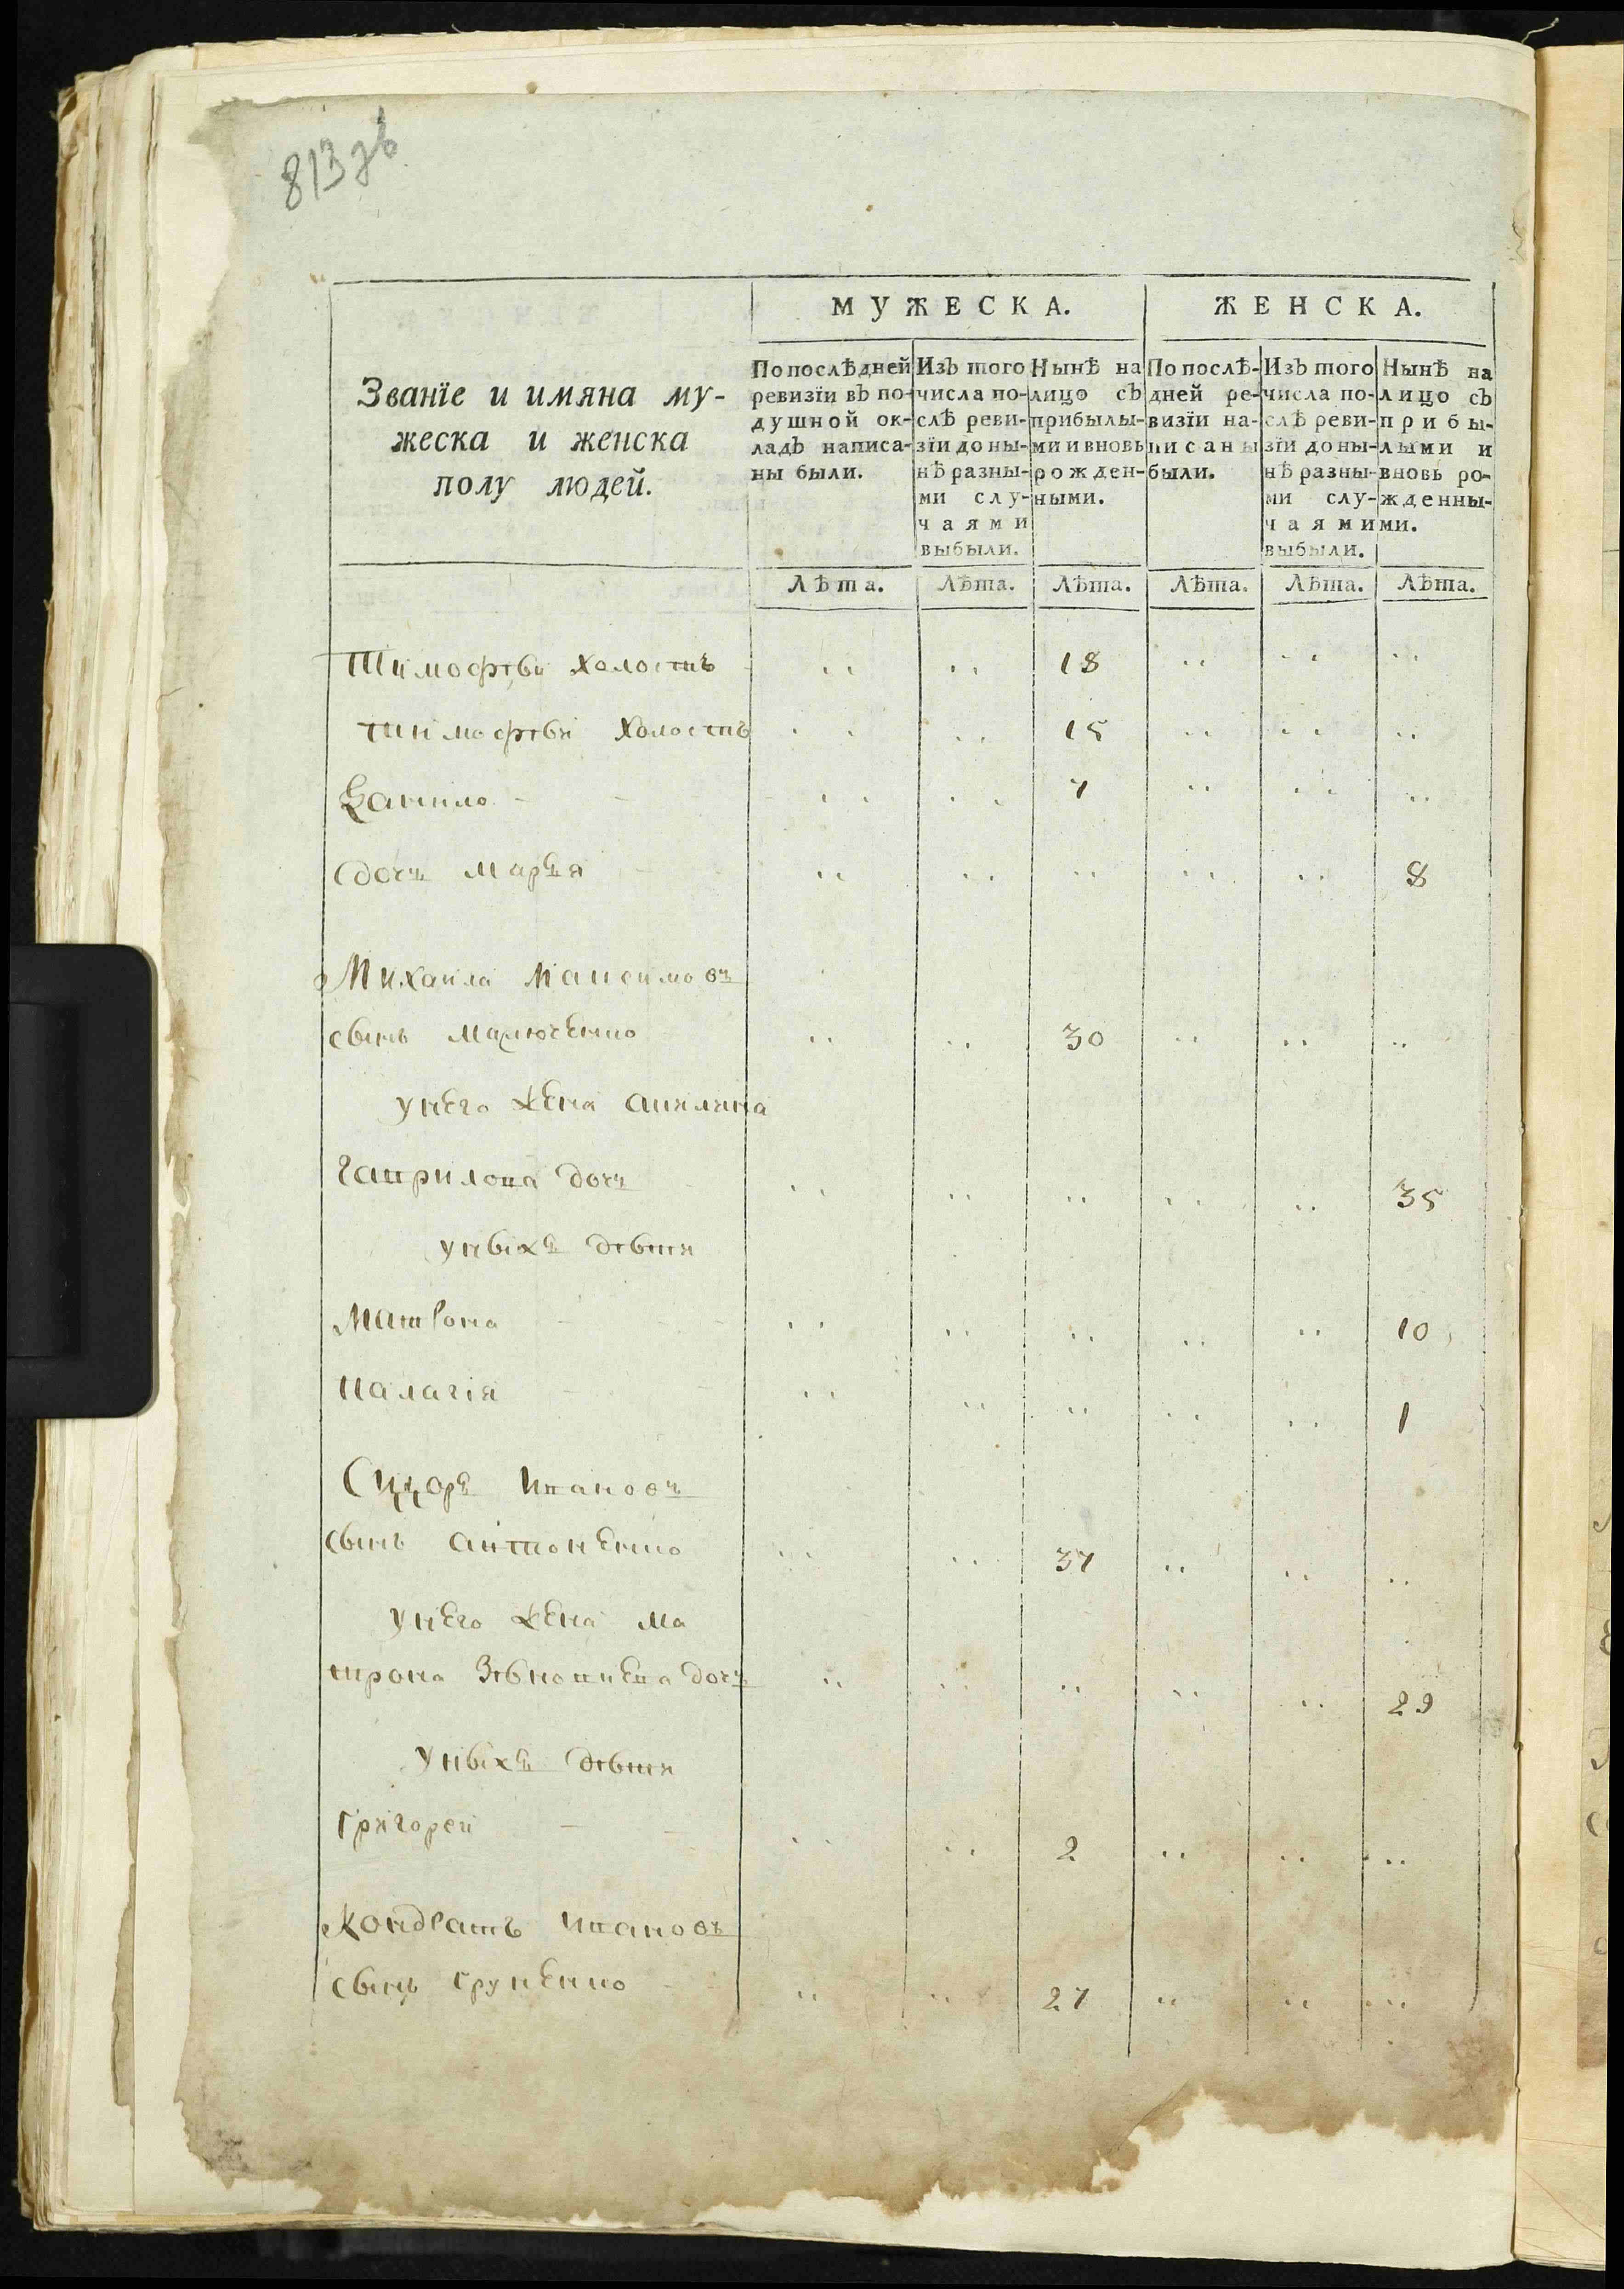 813зв
МУЖЕСКА. ЖЕНСКА.
Званїе и имяна му-
жеска и женска
полу людей.
По послѣдней
ревизїи въ по-
душной ок-
ладъ написа-
ны были.
Изъ того
числа по-
слѣ реви-
зїи до ны-
нѣ разны-
ми слу-
чаями
выбыли.
Нынѣ на
лицо съ
прибылы-
ми и вновь
рожден-
ными.
По послѣ-
дней ре-
визїи на-
писаны
были.
Изъ того
числа по-
слѣ реви-
зїи до ны-
нѣ разны-
ми слу-
чаями
выбыли.
Нынѣ на
лицо съ
прибы-
лыми и
вновь ро-
жденны-
ми.
Лѣта. Лѣта. Лѣта. Лѣта. Лѣта. Лѣта.
Тимофѣи холостъ 18
тимофѣи холостъ 15
Данило 7
дочь марья 8
Михаила Максимовъ
сынъ малюченко 30
унего жена
гаврилова дочь 35
уныхъ дѣти
Матрона 10
палагїя 1
Сидоръ ивановъ
сынъ антоненко 37
унего жена ма
трона дочь 29
уныхъ дѣти
григореи 2
Кондратъ ивановъ
сынъ груненко 27